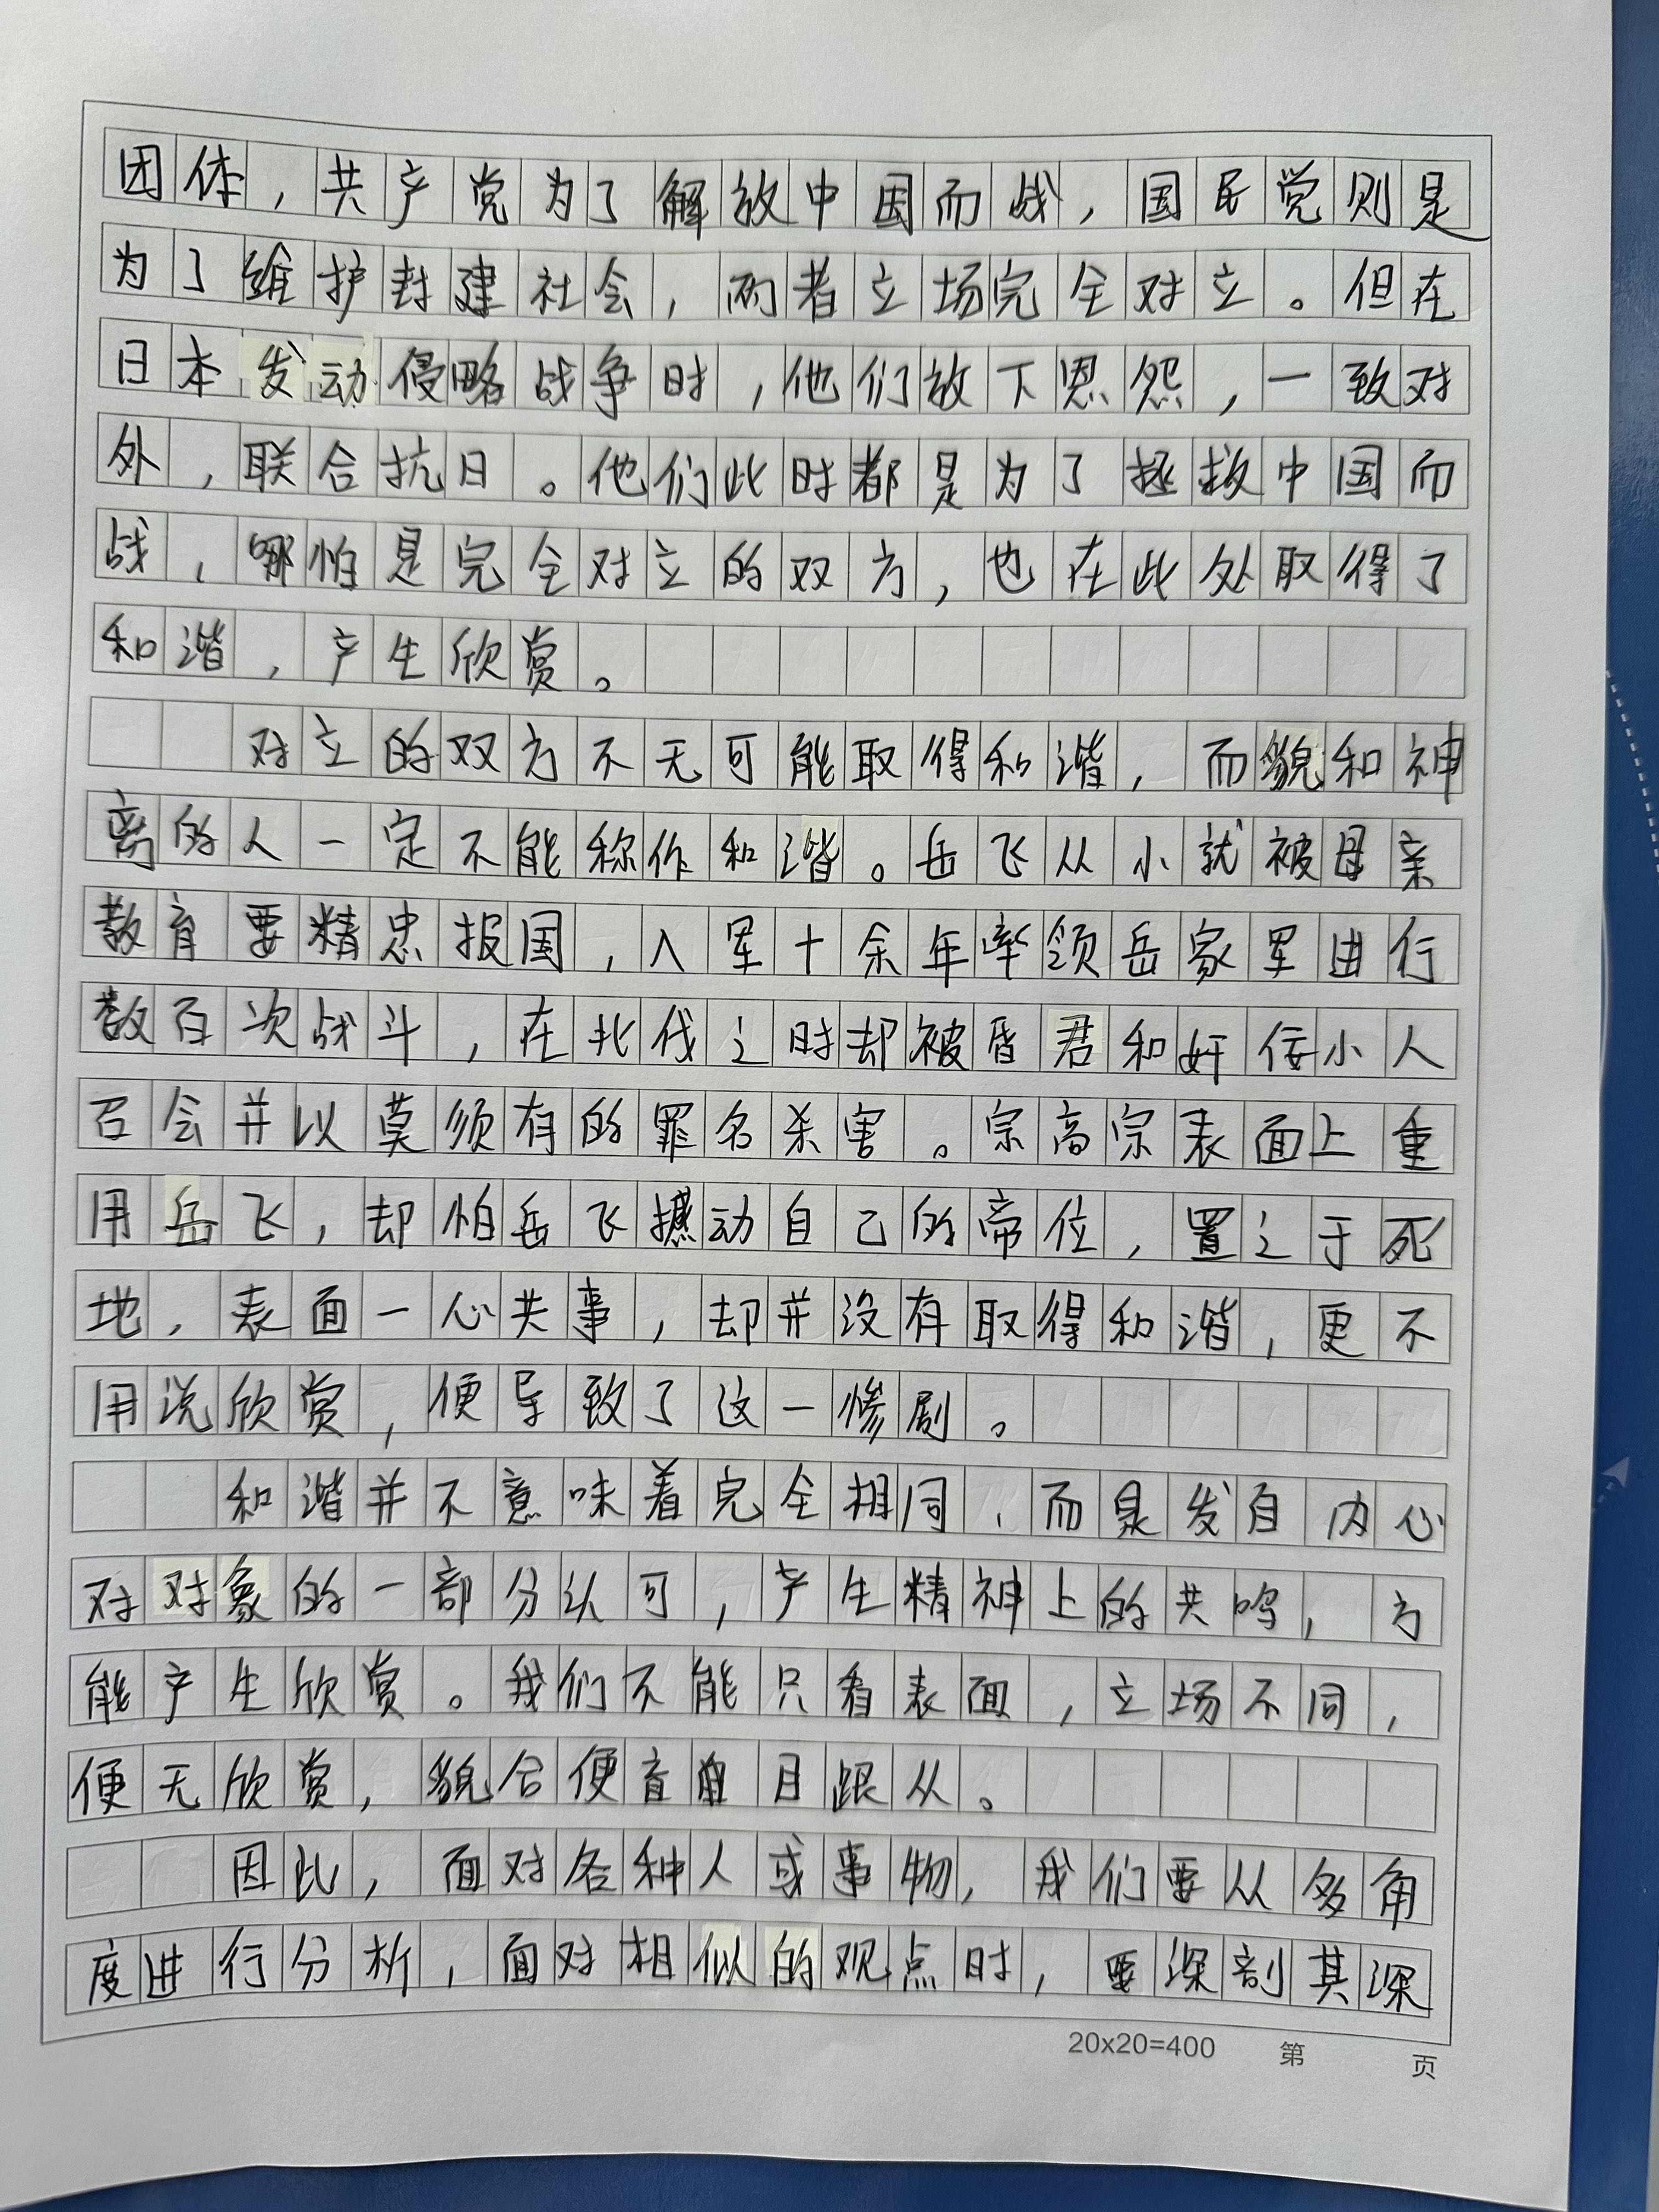 团体，共产党为了解放中国而战，国民党则是
为了维护封建社会，两者立场完全对立。但在
日本发动侵略战争时，他们放下恩怨，一致对
外，联合抗日。他们此时都是为了拯救中国而
战，哪怕是完全对立的双方，也在此处取得了
和谐，产生欣赏。
对立的双方不无可能取得和谐，而貌和神
离的人一定不能称作和谐。岳飞从小就被母亲
教育要精忠报国，入军十余年率领岳家军进行
数百次战斗，在北伐之时却被昏君和奸佞小人
召会并以莫须有的罪名杀害。宗高宗表面上重
用岳飞，却怕岳飞撼动自己的帝位，置之于死
地，表面一心共事，却并没有取得和谐，更不
用说欣赏，便导致了这一惨剧。
和谐并不意味着完全相同，而是发自内心
对对象的一部分认可，产生精神上的共鸣，方
能产生欣赏。我们不能只看表面，立场不同，
便无欣赏，貌合便盲目跟从。
因此，面对各种人或事物，我们要从多角
度进行分析，面对相似的观点时，要深剖其深
20x20=400 第 页